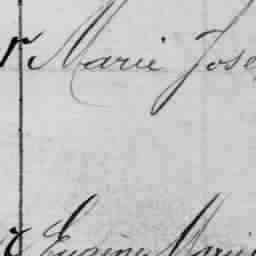 r Marie Jose
Eugène Marie